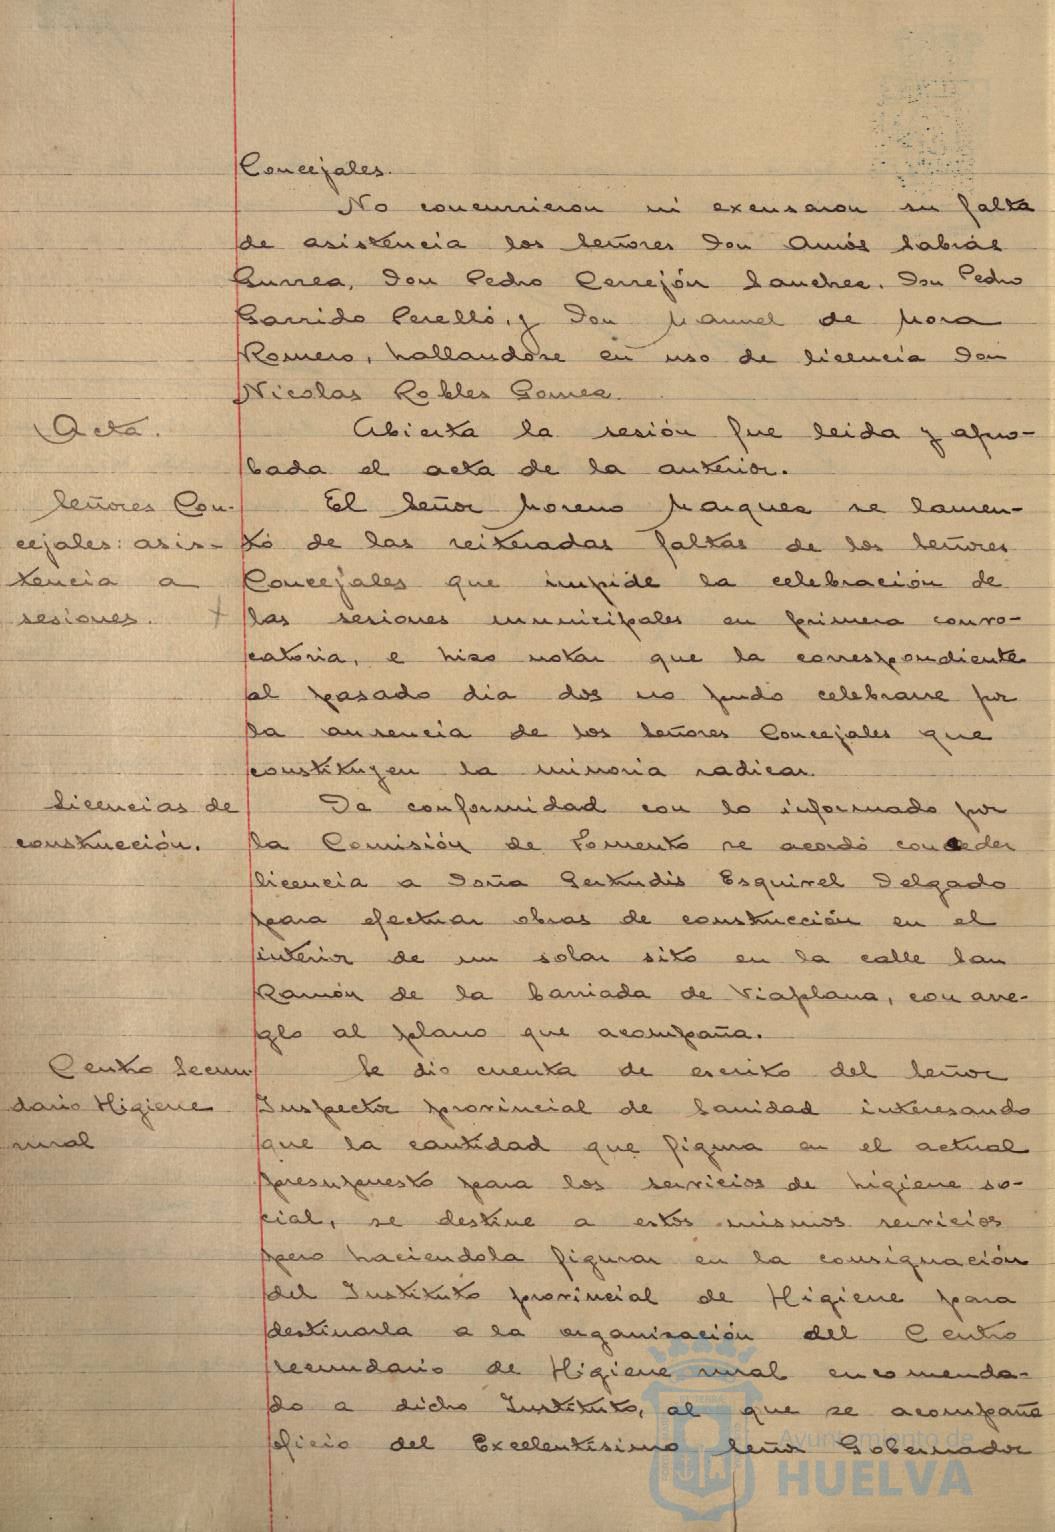 Concejales.
No concurrieron ni excusaron su falta
de asistencia los Señores Don Amós Sabrás
Gurrea, Don Pedro Cerrejón Sanchez, Don Pedro
Garrido Perelló, y Don Manuel de Mora
Romero, hallandose en uso de licencia Don
Nicolas Robles Gomez.
Acta.
Abierta la sesión fue leida y apro-
bada el acta de la anterior.
Señores Con-
cejales: asis-
tencia a
sesiones.
El Señor Moreno Marquez se lamen-
tó de las reiteradas faltas de los Señores
Concejales que impide la celebración de
las sesiones municipales en primera convo-
catoria, e hizo notar que la correspondiente
al pasado dia dos no pudo celebrarse por
la ausencia de los Señores Concejales que
constituyen la minoria radical.
Licencias de
construcción.
De conformidad con lo informado por
la Comisión de Fomento se acordó conceder
licencia a Doña Gertrudis Esquivel Delgado
para efectuar obras de construcción en el
interior de un solar sito en la calle San
Ramón de la barriada de Viaplana, con arre-
glo al plano que acompaña.
Centro Secun
dario Higiene
rural
Se dio cuenta de escrito del Señor
Inspector provincial de Sanidad interesando
que la cantidad que figura en el actual
presupuesto para los servicios de higiene so-
cial, se destine a estos mismos servicios
pero haciendola figurar en la consignación
del Instituto provincial de Higiene para
destinarla a la organización del Centro
secundario de Higiene rural encomenda-
do a dicho Instituto, al que se acompaña
oficio del Excelentisimo Señor Gobernador
Ayuntamiento de
HUELVA